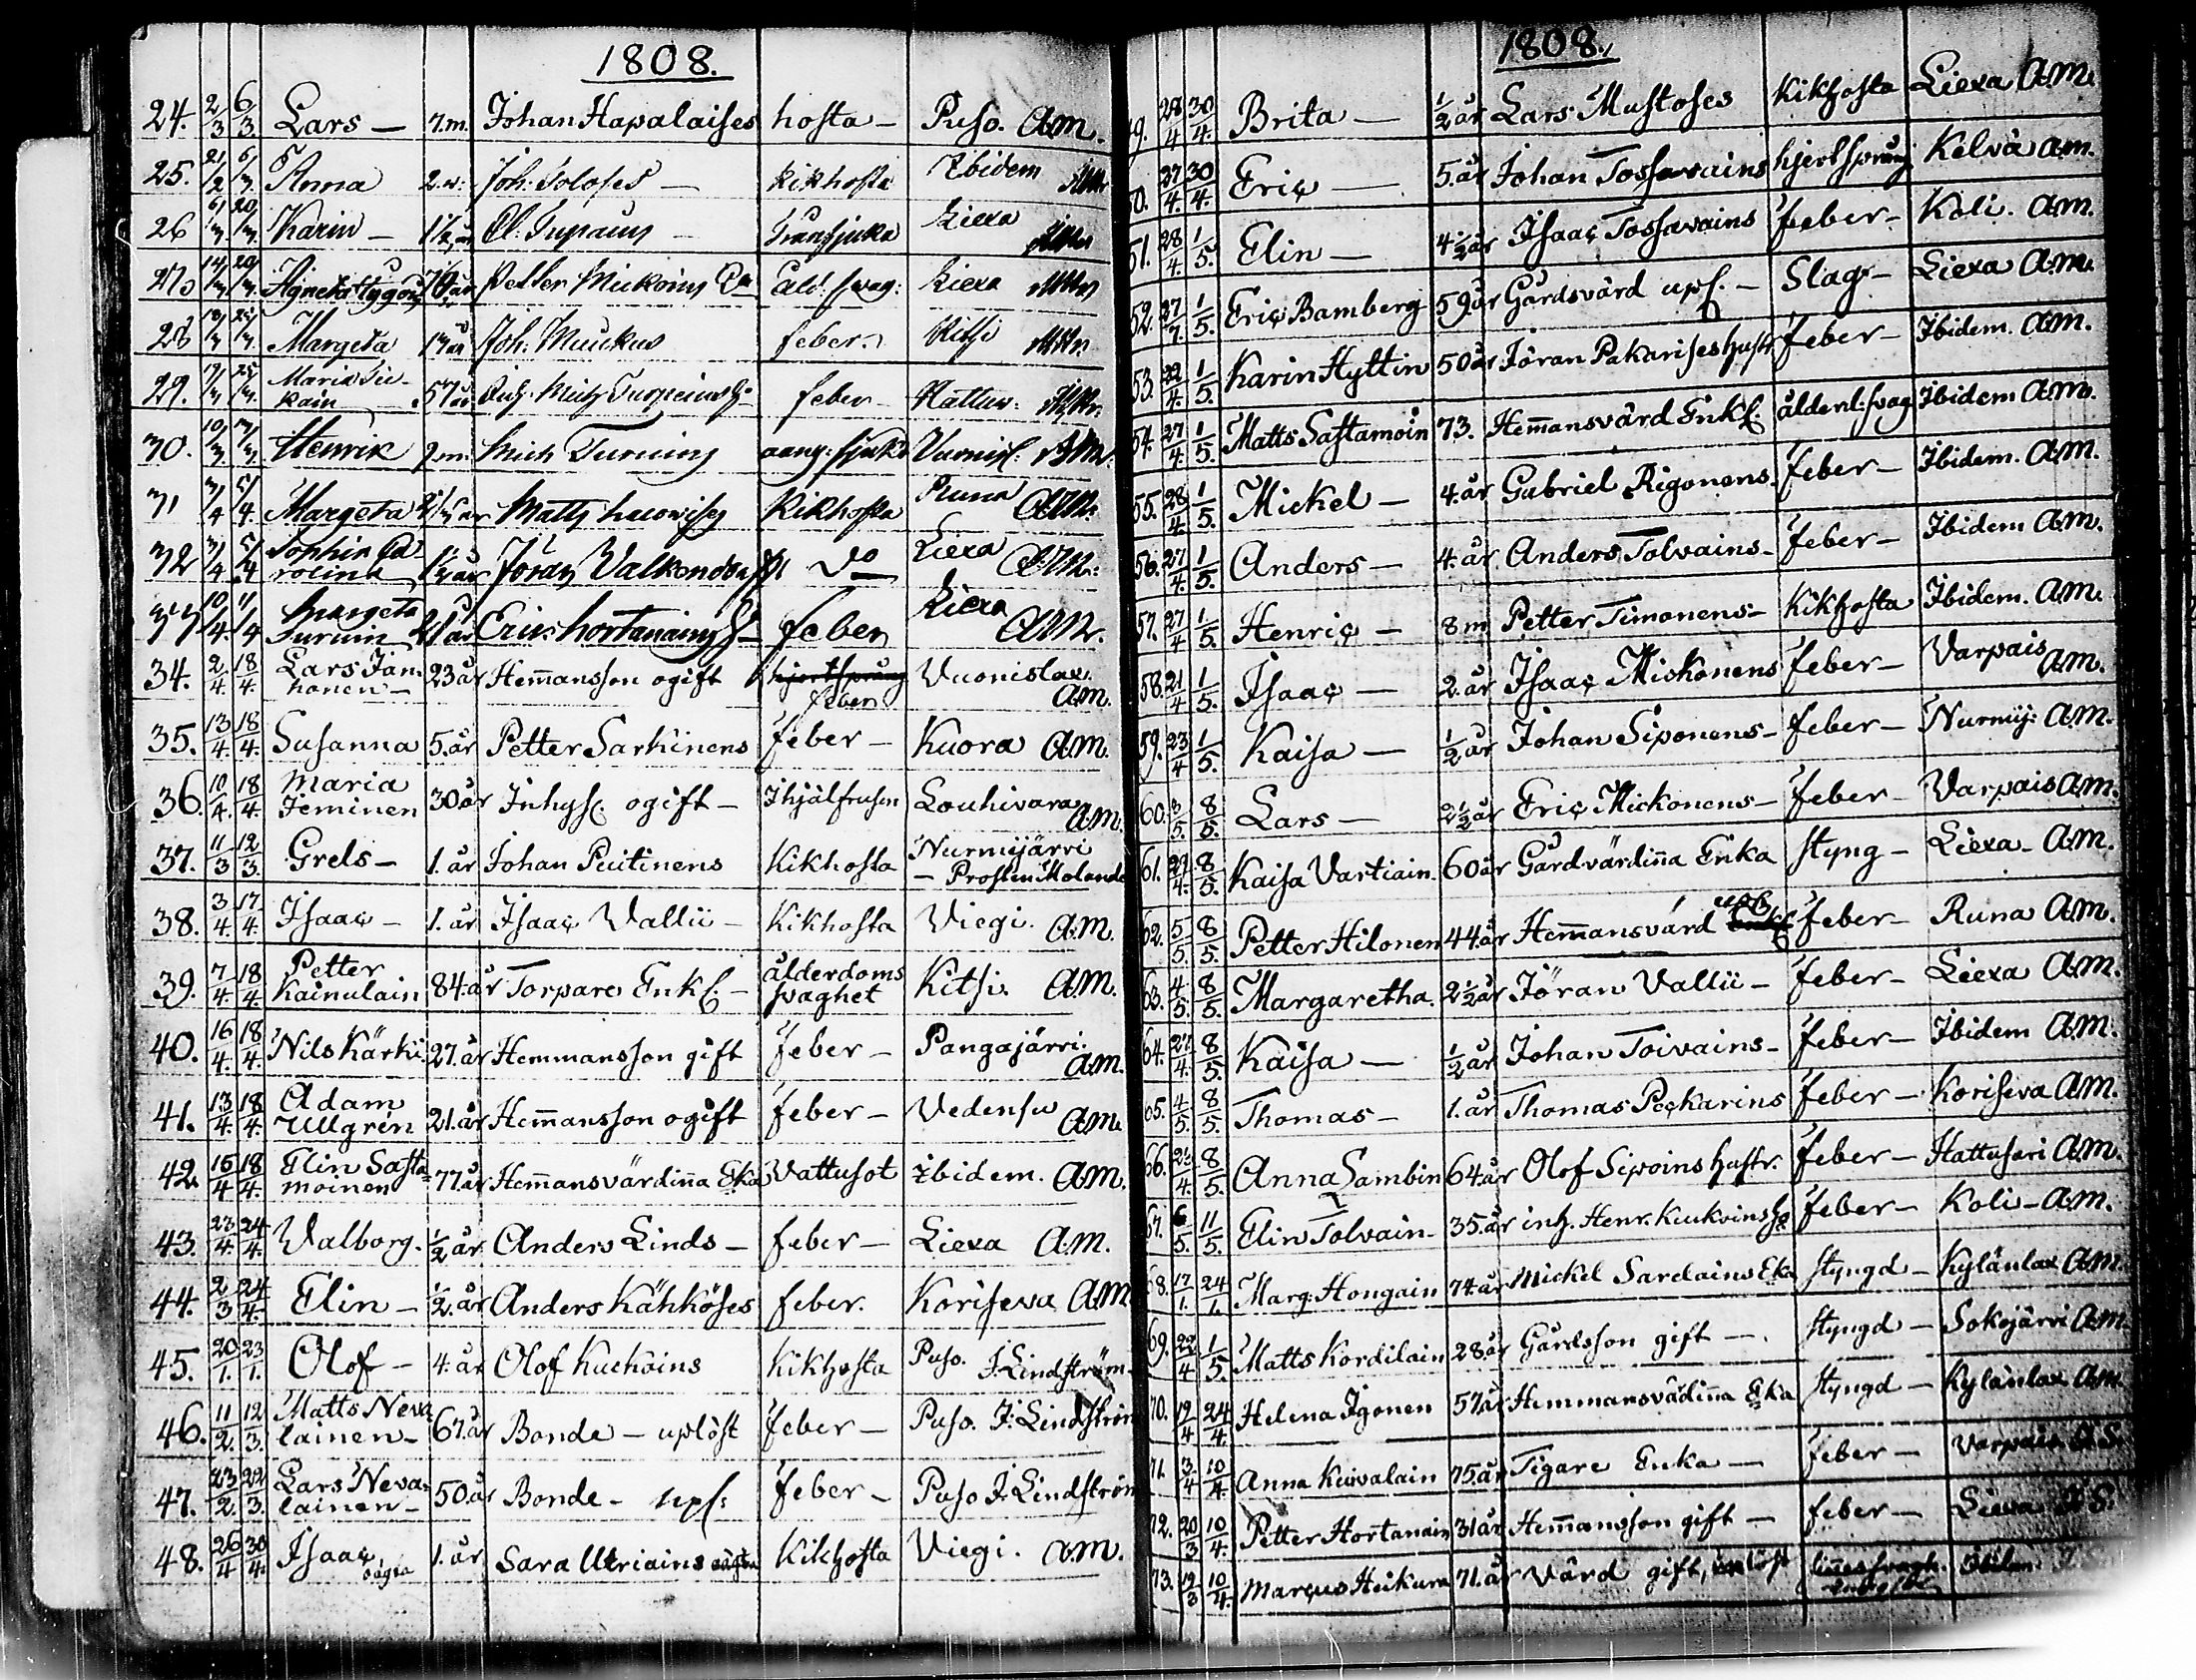 1808.
24. 2/3 6/3 Lars — 7.m. Johan Hapalaises hosta — Puso. A.M.
25. 21/2 6/3 Anna 2.w. Joh: kikhosta Ibidem
26 6/3 20/3 Karin — Ol: Liexa
27 14/3 20/3 Agneta Petter Liexa
28 Margeta Joh: Muukus feber. Kitsi
29. Maria 57 feber Hattus:
30. Henrik 2.m. Mich Turuins Vuonisl:
31 3/4 5/4 Margeta Matts Kikhosta Runa A.M.
32 3/4 5/4 Sophia Ca-
rolina Jöran do Liexa A.M.
33 10/4 11/4 Margeta
Turuin Eric Hortanains feber Liexa A.M.
34. 2/4. 18/4. Lars Jan-
honen — 23 år Hem̄ansson ogift hjertsprång
feber Vuonislax. A.M.
35. 13/4. 18/4. Susanna 5. år Petter Sarkinens feber — Kuora A.M.
36. 10/4. 18/4. Maria
Jeminen 30 år Inhys. ogift — Ihjälfrusen Louhivara A.M.
37. 11/3 12/3. Grels — 1. år Johan Puitinens Kikhosta Nurmijärvi
— Prosten Molande
38. 3/4. 17/4. Isaac — 1. år Isaac Vallii — Kikhosta Viegi. A.M.
39. 7/4. 18/4. Petter
Kainulain 84. år Torpare Enkl — ålderdoms
svaghet Kitsi. A.M.
40. 16/4. 18/4. Nils Kärki. 27. år Hemmansson gift feber — Pangajärvi. A.M.
41. 13/4. 18/4. Adam
Ullgrén 21. år Hem̄ansson ogift feber — Vedensu A.M.
42. 15/4 18/4. Elin Sasta-
moinen 77. år Hem̄ansvärdin̄a Eka Vattusot Ibidem. A.M.
43. 23/4. 24/4. Valborg. 1/2 år Anders Linds — feber — Liexa A.M.
44. 2/3 24/4. Elin — 1/2. år Anders Kähköses feber. Koriseva A.M
45. 20/1. 23/1. Olof — 4. år Olof Kuckoins Kikhosta Puso. J. Lindström
46. 11/2. 12/3. Matts Neva-
lainen — 67. år Bonde — uplöst feber — Puso. J. Lindström
47. 23/2. 22/3. Lars Neva-
lainen — 50. år Bonde — upl: feber — Puso J. Lindström
48. 26/4 30/4. Isaac,
oägta 1. år Sara Utriains oägta Kikhosta Viegi. A.M.
1808.
9. 28/4 30/4. Brita — 1/2 år Lars Mustoses Kikhosta Liexa A.M.
50. 27/4. 30/4. Eric — 5. år Johan Tossavains hjertsprång Kelvä A.M.
51. 28/4. 1/5. Elin — 4 1/2 år Isaac Tossavains feber — Koli. A.M.
52. 1/5. Eric Bamberg 59. år Gårdsvärd upl. — Slag — Liexa A.M.
53. 22/4. 1/5. Karin Hyttin 50 år Jöran Pakarises hustr feber — Ibidem. A.M.
54. 27/4. 1/5. Matts Sastamoin 73. Hem̄ansvärd Enkl. ålderd: svag Ibidem A.M.
55. 28/4. 1/5. Mickel — 4. år Gabriel Rigonens. feber — Ibidem. A.M.
56. 27/4. 1/5. Anders — 4. år Anders Tolvains — feber — Ibidem A.M.
57. 27/4 1/5. Henric — 8 m Petter Timonens — Kikhosta Ibidem. A.M.
58. 21/4 1/5. Isaac — 2. år Isaac Mickonens feber — Varpais A.M.
59. 23/4 1/5. Kaisa — 1/2 år Johan Siponens — feber — Nurmij: A.M.
60. 3/5. 8/5. Lars — 2 1/2 år Eric Mickonens — feber — Varpais A.M.
61. 8/5. Kaisa Vartiain. 60 år Gårdvärdin̄a Enka styng — Liexa — A.M.
62. 5/5. 8/5. Petter Hilonen 44. år Hem̄ansvärd upl. feber — Runa A.M.
63. 4/5. 8/5. Margaretha. 2 1/2 år Jöran Vallii — feber — Liexa A.M.
64. 27/4. 8/5. Kaisa — 1/2 år Johan Toivains — feber — Ibidem A.M.
65. 4/5. 8/5. Thomas — 1. år Thomas Peckarins feber — Koriseva A.M.
66. 8/5. Anna Sambin 64. år Olof Sipoins hustr. feber — Hattusari A.M.
67. 6/5. 11/5. Elin Tolvain — 35. år inh. Henr. Kuckoins h. feber — Koli — A.M.
68. 17/1. 24/1. Marg. Hongain 74. år Mickel Sarelains Eka styngd — Kylänlax A.M.
69. 22/4 1/5. Matts Kordilain 28. år Gårdsson gift — styngd — Sokojärvi A.M.
70. 19/4 24/4. Helena Igonen 57. år Hemmansvärdin̄a Eka styngd — Kylänlax A.M.
71. 3/4 10/4. Anna Keivalain 75. år Tigare Enka — feber — Varpais.
72. 20/3 10/4. Petter Hortanain 31 år Hem̄ansson gift — feber — Liexa
73. 19/3 10/4. Marcus Heikura 71. år Värd gift, Ibidem